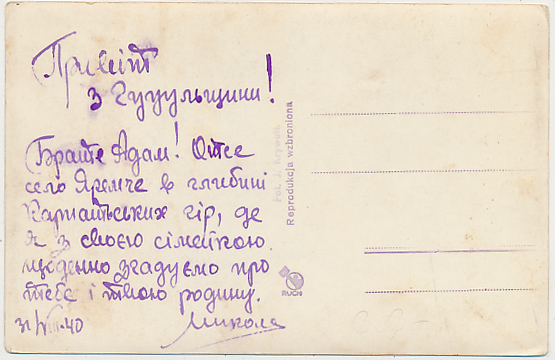 Привіт
з Гуцульщини!
Брате Адам! Отсе
село Яремче в глибині
Карпатських гір, де
я з своєю сімейкою
щоденно згадуємо про
тебе і твою родину.
31/VIII-40 Микола
Reprodukcja wzbroniona
RUCH